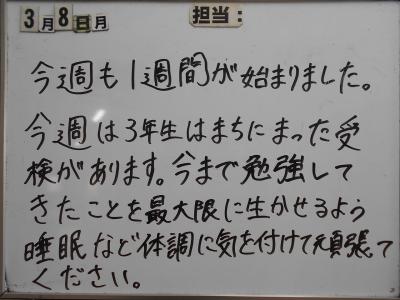 3月8日月 担当:
今週も1週間が始まりました。
今週は3年生はまちにまった受
検があります。今まで勉強して
きたことを最大限に生かせるよう
睡眠など体調に気を付けて頑張って
ください。